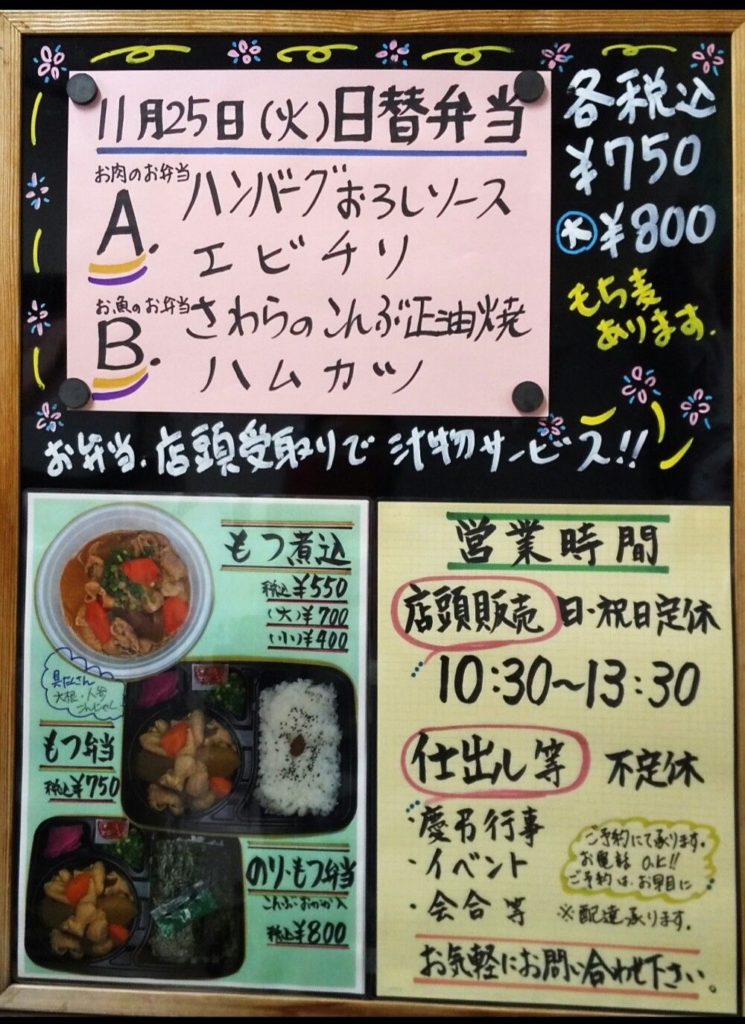 11月25日(火)日替弁当
お肉のお弁当
A. ハンバーグおろしソース
エビチリ
お魚のお弁当
B. さわらのこんぶ正油焼
ハムカツ
各税込
¥750
大 ¥800
もち麦
あります.
お弁当.店頭受取りで 汁物サービス!!
もつ煮込
税込¥550
(大)¥700
(小)¥400
具だくさん
大根・人参
こんにゃく
もつ弁当
税込¥750
のり・もつ弁当
こんぶ・おかか入
税込¥800
営業時間
店頭販売 日・祝日定休
10:30〜13:30
仕出し等 不定休
・慶弔行事
・イベント
・会合 等
ご予約にて承ります.
お電話 O.K!!
ご予約は、お早目に
※配達承ります.
お気軽にお問い合わせ下さい。